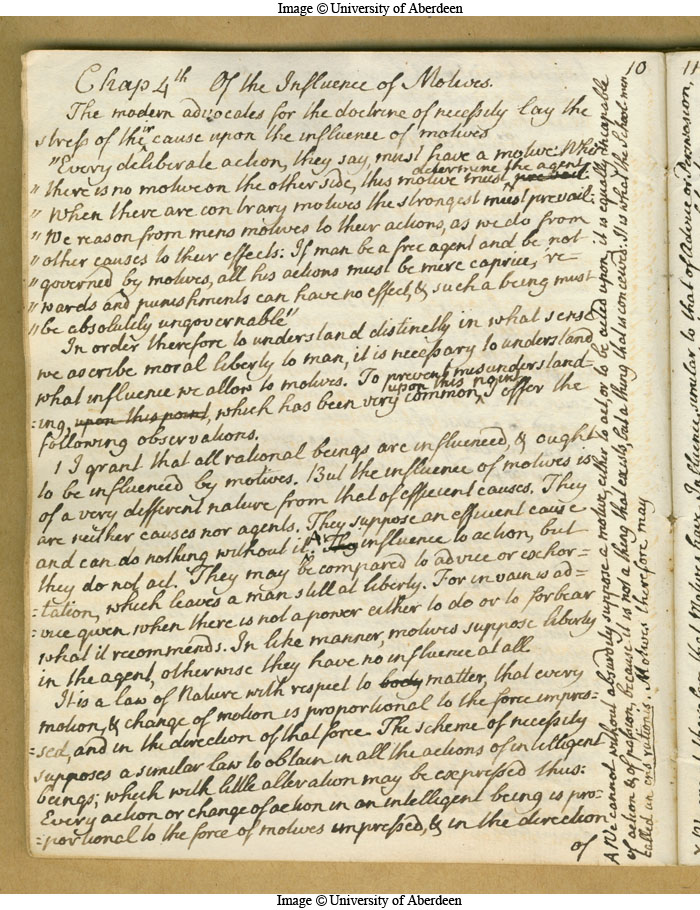 Image © University of Aberdeen
10
Chap 4th Of the Influence of Motives.
The modern advocates for the doctrine of necessity lay the
stress of their cause upon the influence of motives
"Every deliberate action, they say, must have a motive. When
" there is no motive on the other side, this motive must determine the agent
" When there are contrary motives the strongest must prevail:
" We reason from mens motives to their actions, as we do from
" other causes to their effects: If man be a free agent and be not
" governed by motives, all his actions must be mere caprice, re=
" wards and punishments can have no effect, & such a being must
" be absolutely ungovernable"
In order therefore to understand distinctly in what sense
we ascribe moral liberty to man, it is necessary to understand
what influence we allow to motives. To prevent misunderstand-
ing, upon this point, which has been very common, upon this point I offer the
following observations.
1 I grant that all rational beings are influenced, & ought
to be influenced by motives. But the influence of motives is
of a very different nature from that of efficient causes. They
are neither causes nor agents. They suppose an efficient cause
and can do nothing without it. A They influence to action, but
they do not act. They may be compared to advice or exhor=
=tation, which leaves a man still at liberty. For in vain is ad=
=vice given when there is not a power either to do or to forbear
what it recommends. In like manner, motives suppose liberty
in the agent, otherwise they have no influence at all
It is a law of Nature with respect to body matter, that every
motion, & change of motion is proportional to the force impres=
=sed, and in the direction of that force. The scheme of necessity
supposes a similar law to obtain in all the actions of intelligent
beings; which with little alteration may be expressed thus:
Every action or change of action in an intelligent being is pro=
=portional to the force of motives impressed, & in the direction
of
A We cannot without absurdity suppose a motive, either to act, or to be acted upon, it is equally incapable
of action & of passion; because it is not a thing that exists, but a thing that is conceived. It is what the School men
called an ens rationis. Motives therefore may
11
that of Advice or Persuasion,
Image © University of Aberdeen